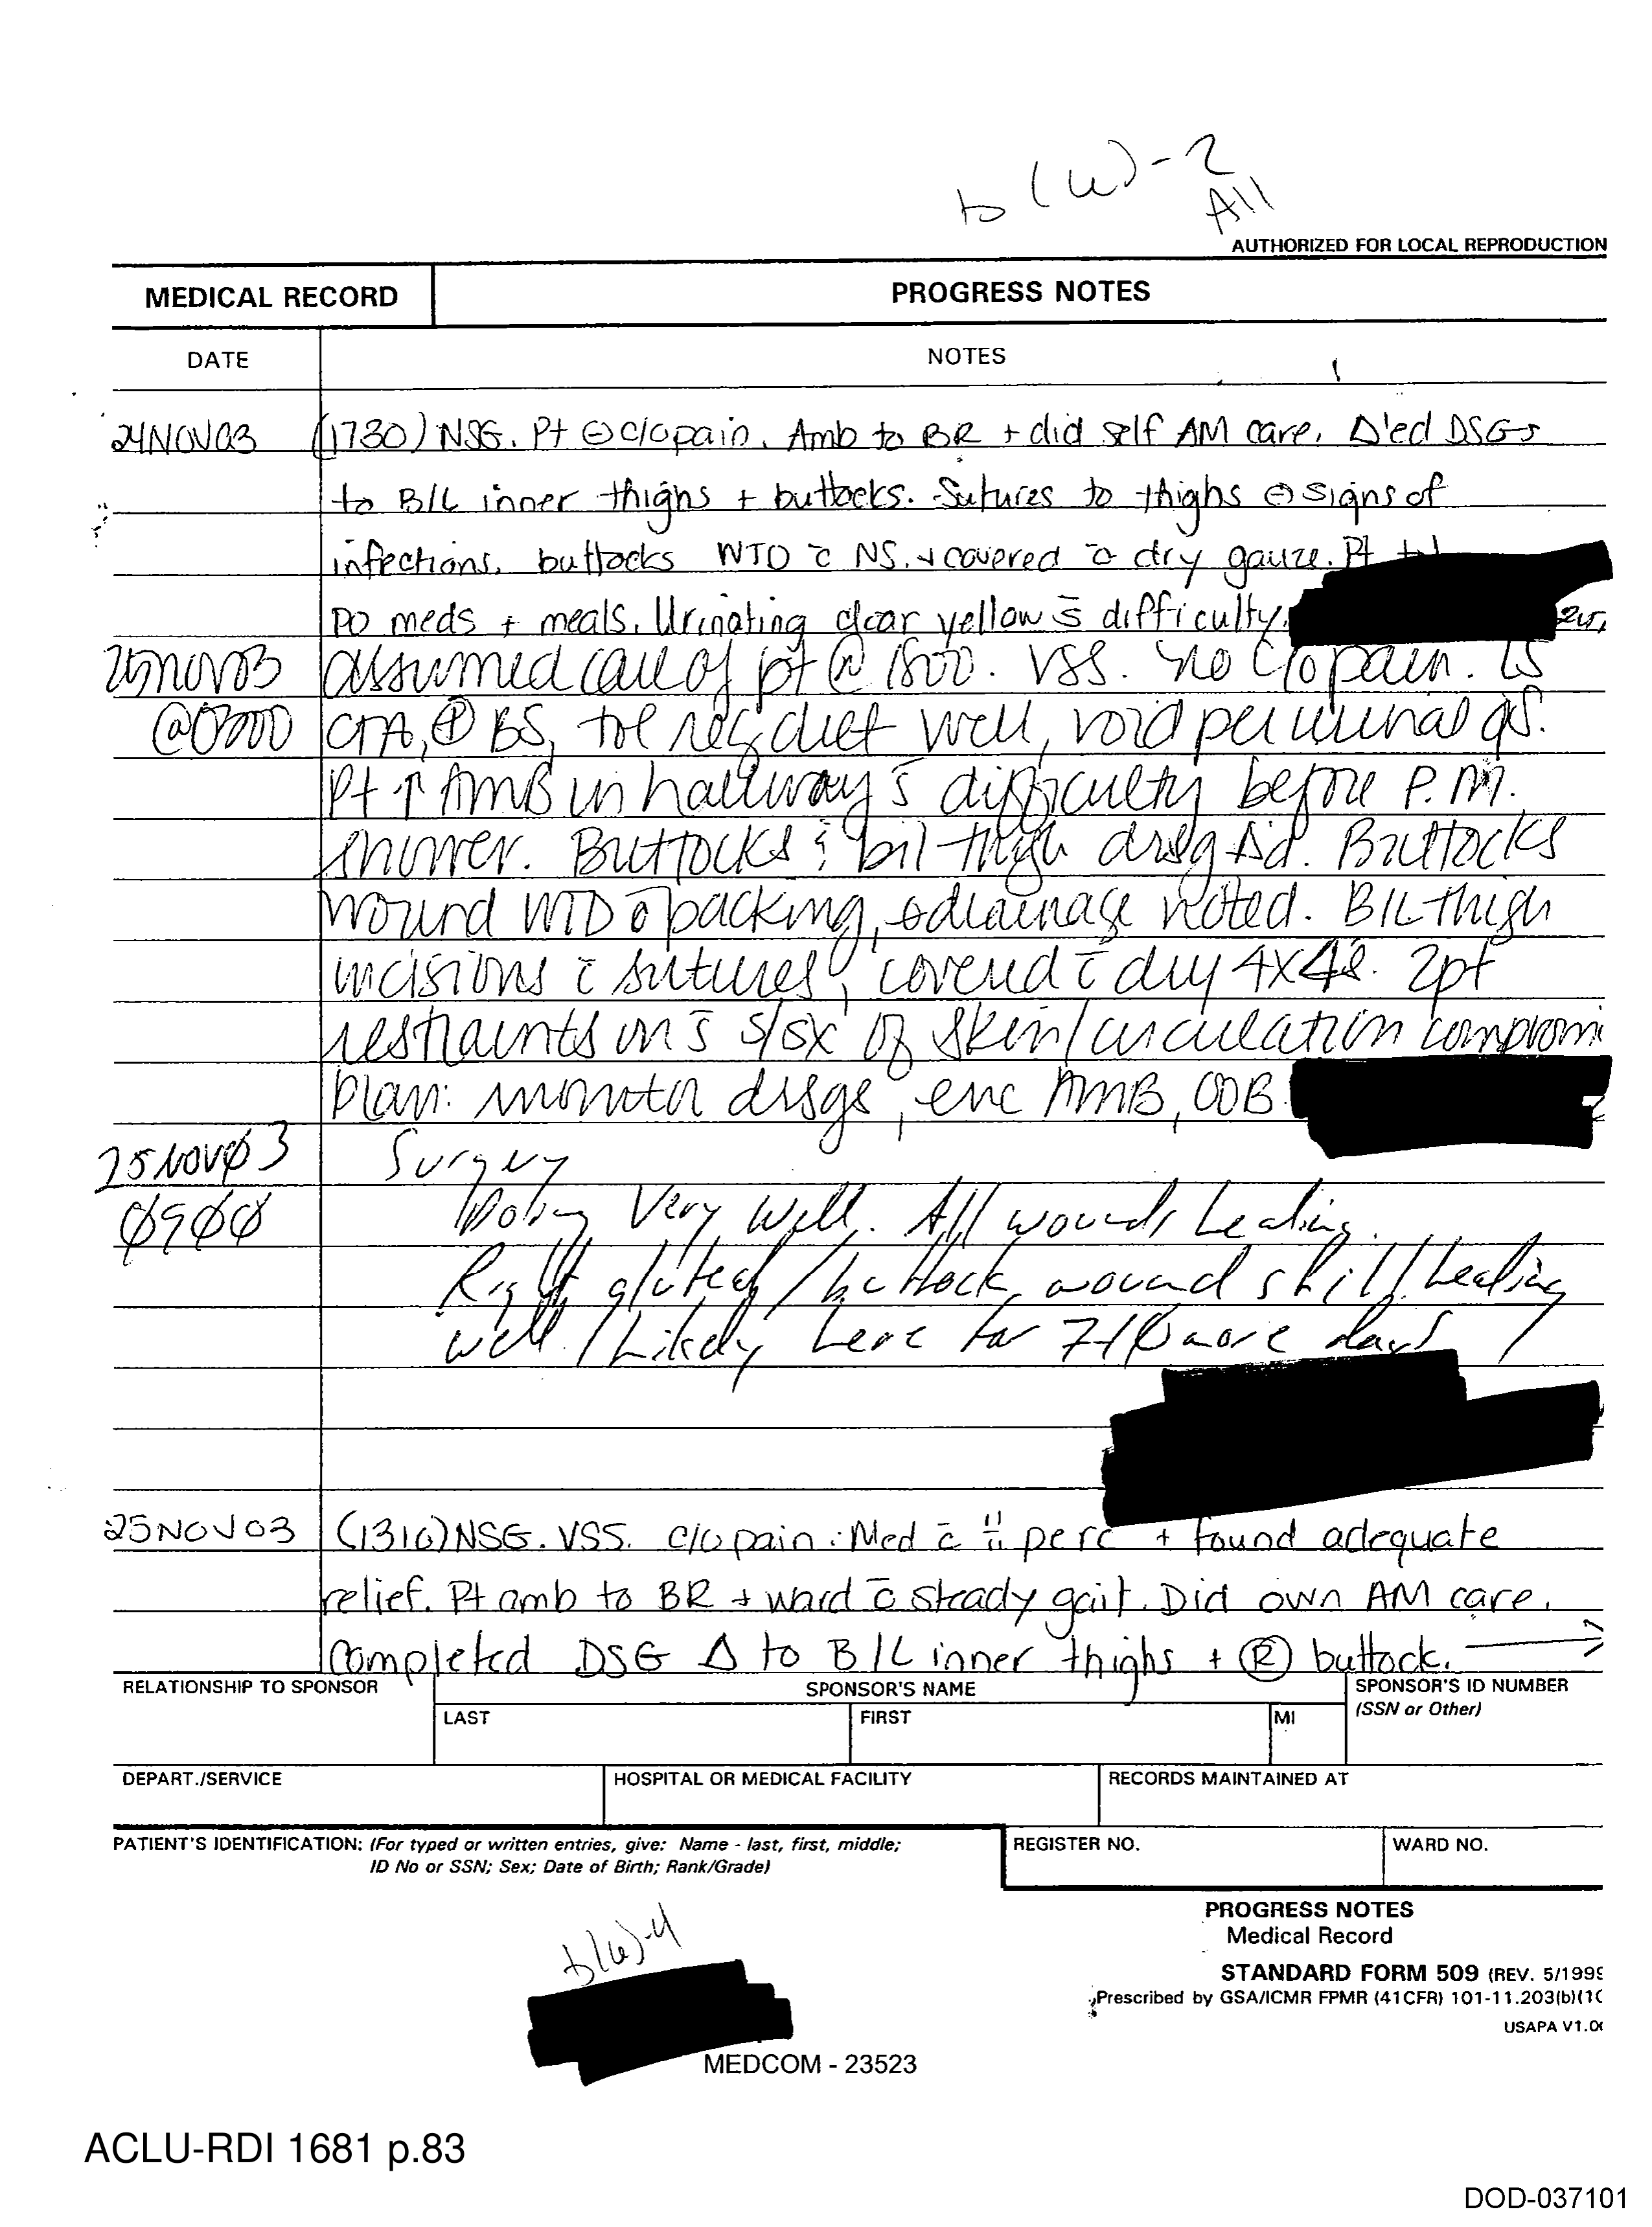 b(6)-2
All
AUTHORIZED FOR LOCAL REPRODUCTION
MEDICAL RECORD
PROGRESS NOTES
DATE
NOTES
24NOV03 (1730) NSG. Pt ⊖ c/o pain. Amb to BR + did self AM care. Δ'ed DSGs
to B/L inner thighs + buttocks. Sutures to thighs ⊖ signs of
infections. buttocks WTD c̄ NS. + covered c̄ dry gauze. Pt tol
PO meds + meals. Urinating clear yellow s̄ difficulty.
25NOV03 assumed care of pt @ 1800. VSS. No c/o pain. LS
@0300 CTA, ⊕ BS, tol reg diet well, void per urinal qs.
Pt ↑ AMB in hallway s̄ difficulty before P.M.
shower. Buttocks & bil thigh drsg Δ'd. Buttocks
wound WTD c̄ packing, drainage noted. B/L thigh
incisions c̄ sutures, covered c̄ dry 4x4s. 2pt
restraints on s̄ s/sx of skin/circulation compromi
plan: monitor drsgs, enc AMB, OOB.
25NOV03 Surgery
0900 Doing Very Well. All wounds healing.
Right gluteal/buttock wound still healing
well. / Likely here for 7-10 more days /
25NOV03 (1310) NSG. VSS. c/o pain: Med c̄ ii perc + found adequate
relief. Pt amb to BR + ward c̄ steady gait. Did own AM care.
Completed DSG Δ to B/L inner thighs + Ⓡ buttock. →
RELATIONSHIP TO SPONSOR
SPONSOR'S NAME
SPONSOR'S ID NUMBER
(SSN or Other)
LAST
FIRST
MI
DEPART./SERVICE
HOSPITAL OR MEDICAL FACILITY
RECORDS MAINTAINED AT
PATIENT'S IDENTIFICATION: (For typed or written entries, give: Name - last, first, middle;
ID No or SSN; Sex; Date of Birth; Rank/Grade)
REGISTER NO.
WARD NO.
PROGRESS NOTES
Medical Record
STANDARD FORM 509 (REV. 5/1999
Prescribed by GSA/ICMR FPMR (41CFR) 101-11.203(b)(10
USAPA V1.00
b(6)-4
MEDCOM - 23523
ACLU-RDI 1681 p.83
DOD-037101